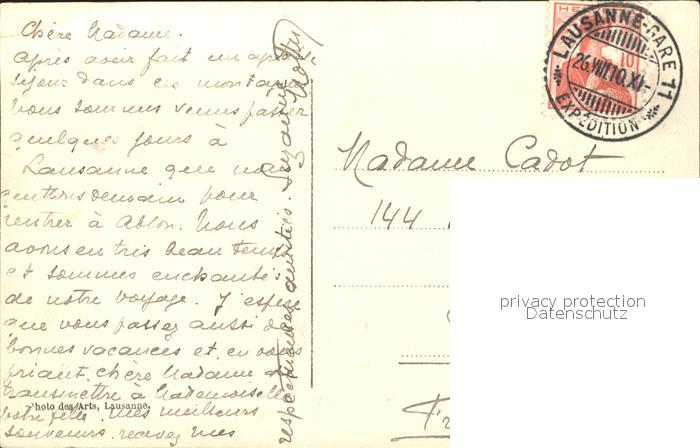 Chère Madame.
Après avoir fait un agréable
séjour dans les montagnes
nous sommes venus passer
quelques jours à
Lausanne que nous
quittons demain pour
rentrer à Ablon. Nous
avons en très beau temps
et sommes enchantés
de notre voyage. J'espère
que vous passez aussi de
bonnes vacances et, en vous
priant, chère Madame de
transmettre à Mademoiselle
votre fille mes meilleurs
souvenirs, recevez mes
respectueuses amitiés. Suzanne
Photo des Arts, Lausanne.
HE
10
LAUSANNE-GARE 11
26.VIII.10.XI-
EXPÉDITION
Madame Cadot
144
Fr
privacy protection
Datenschutz